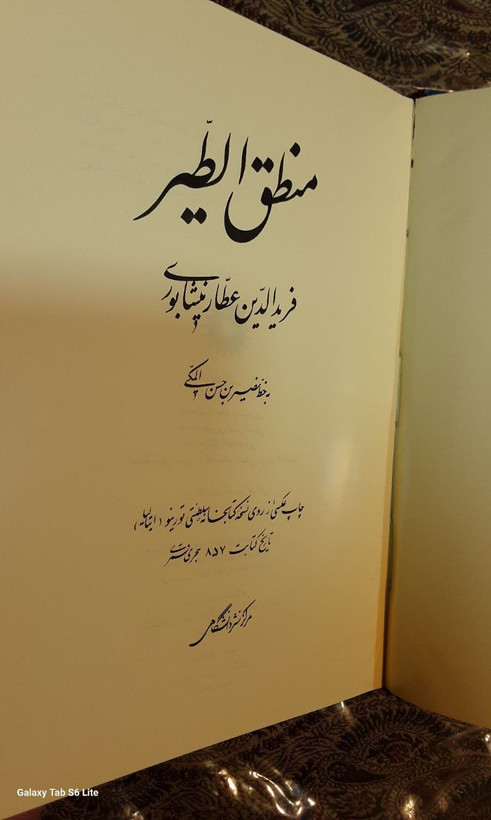 منطق الطّیر
فریدالدّین عطّار نیشابوری
به خطّ نصیر بن حسن المکّی
چاپ عکسی از روی نسخهٔ کتابخانهٔ سلطنتی تورینو (ایتالیا)
تاریخ کتابت ۸۵۷ هجری قمری
مرکز نشر دانشگاهی
Galaxy Tab S6 Lite